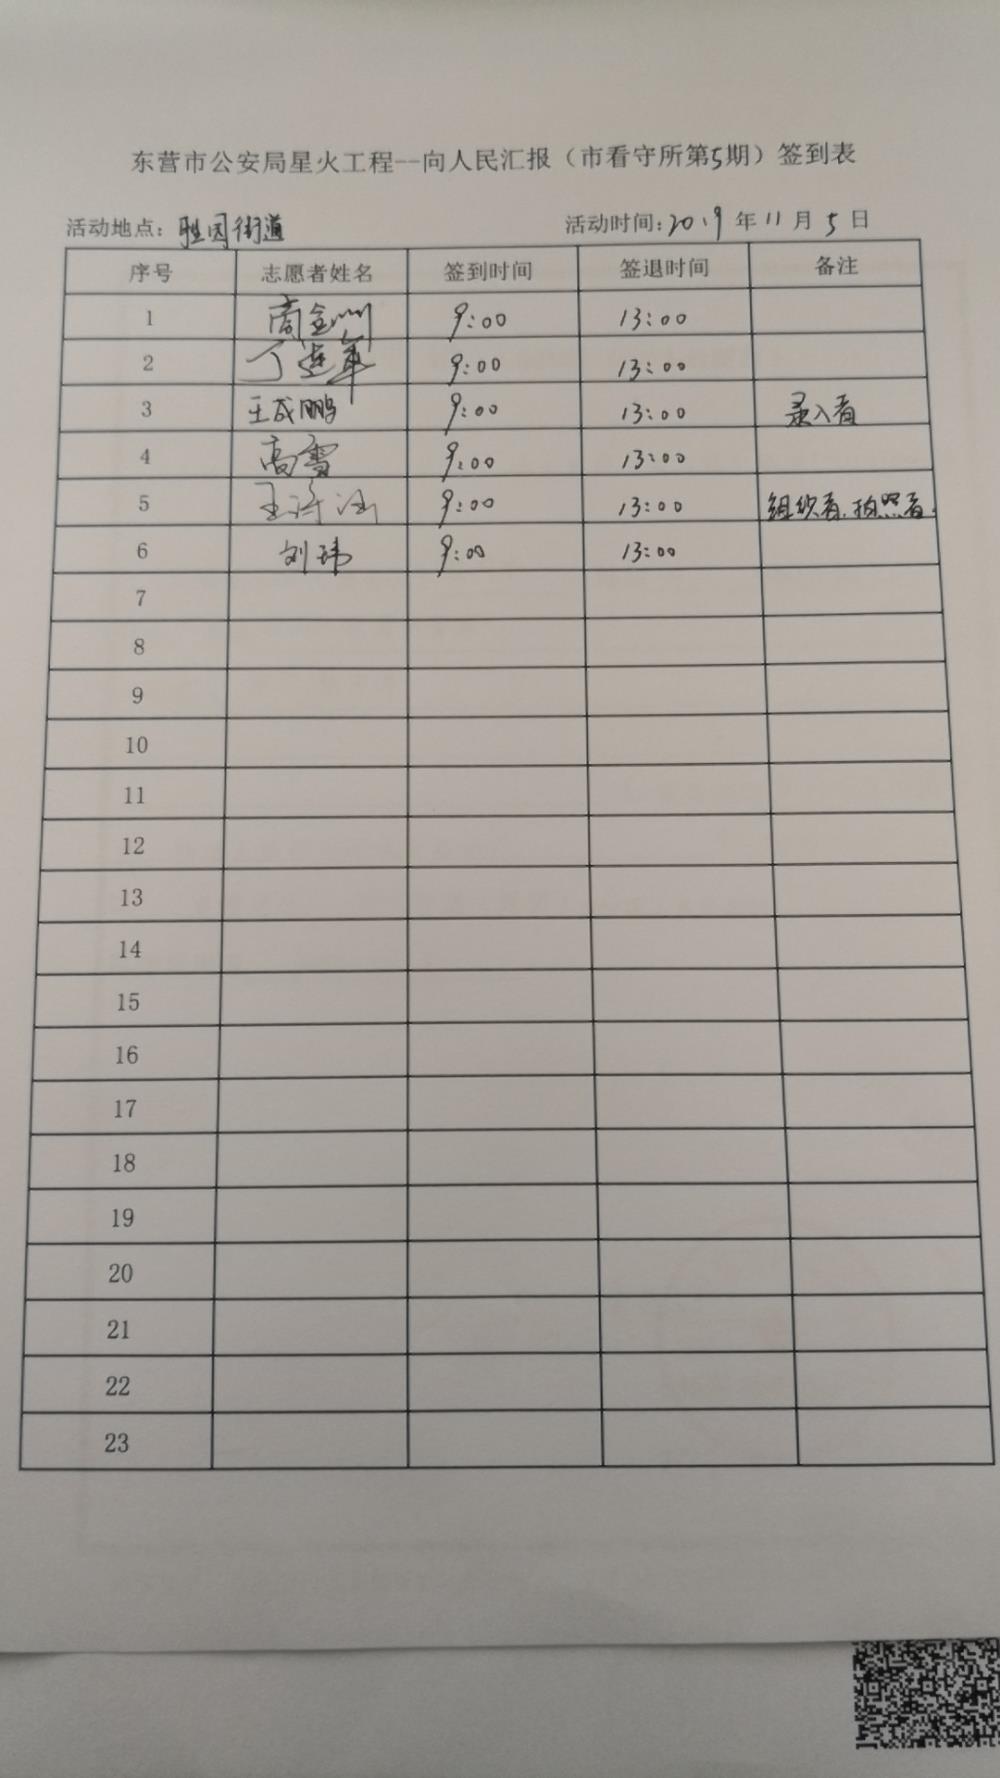 东营市公安局星火工程--向人民汇报（市看守所第5期）签到表
活动地点：胜园街道 活动时间：2019年11月5日
序号 志愿者姓名 签到时间 签退时间 备注
1 9:00 13:00
2 丁连军 9:00 13:00
3 王成鹏 9:00 13:00 录入者
4 高雪 9:00 13:00
5 9:00 13:00 组织者、拍照者.
6 刘玮 9:00 13:00
7
8
9
10
11
12
13
14
15
16
17
18
19
20
21
22
23